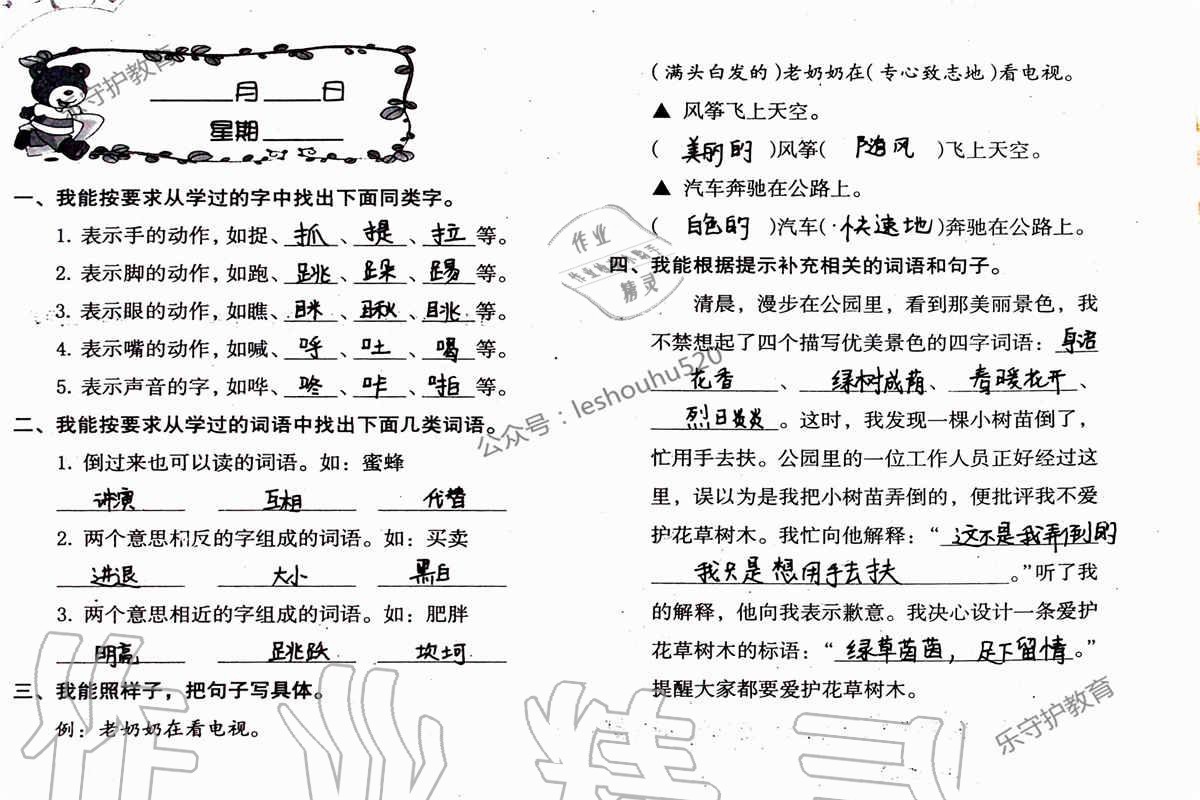 ______月____日
星期______
一、我能按要求从学过的字中找出下面同类字。
1. 表示手的动作，如捉、抓、提、拉等。
2. 表示脚的动作，如跑、跳、跺、踢等。
3. 表示眼的动作，如瞧、眯、瞅、眺等。
4. 表示嘴的动作，如喊、呼、吐、喝等。
5. 表示声音的字，如哗、咚、咔、啪等。
二、我能按要求从学过的词语中找出下面几类词语。
1. 倒过来也可以读的词语。如：蜜蜂
讲演 互相 代替
2. 两个意思相反的字组成的词语。如：买卖
进退 大小 黑白
3. 两个意思相近的字组成的词语。如：肥胖
明亮 跳跃 坎坷
三、我能照样子，把句子写具体。
例：老奶奶在看电视。
(满头白发的)老奶奶在(专心致志地)看电视。
▲ 风筝飞上天空。
( 美丽的 )风筝( 随风 )飞上天空。
▲ 汽车奔驰在公路上。
( 白色的 )汽车( 快速地 )奔驰在公路上。
四、我能根据提示补充相关的词语和句子。
清晨，漫步在公园里，看到那美丽景色，我
不禁想起了四个描写优美景色的四字词语：鸟语
花香、绿树成荫、春暖花开、
烈日炎炎。这时，我发现一棵小树苗倒了，
忙用手去扶。公园里的一位工作人员正好经过这
里，误以为是我把小树苗弄倒的，便批评我不爱
护花草树木。我忙向他解释：“这不是我弄倒的
我只是想用手去扶。”听了我
的解释，他向我表示歉意。我决心设计一条爱护
花草树木的标语：“绿草茵茵，足下留情。”
提醒大家都要爱护花草树木。
乐守护教育
作业
作业精灵
公众号：leshouhu520
乐守护教育